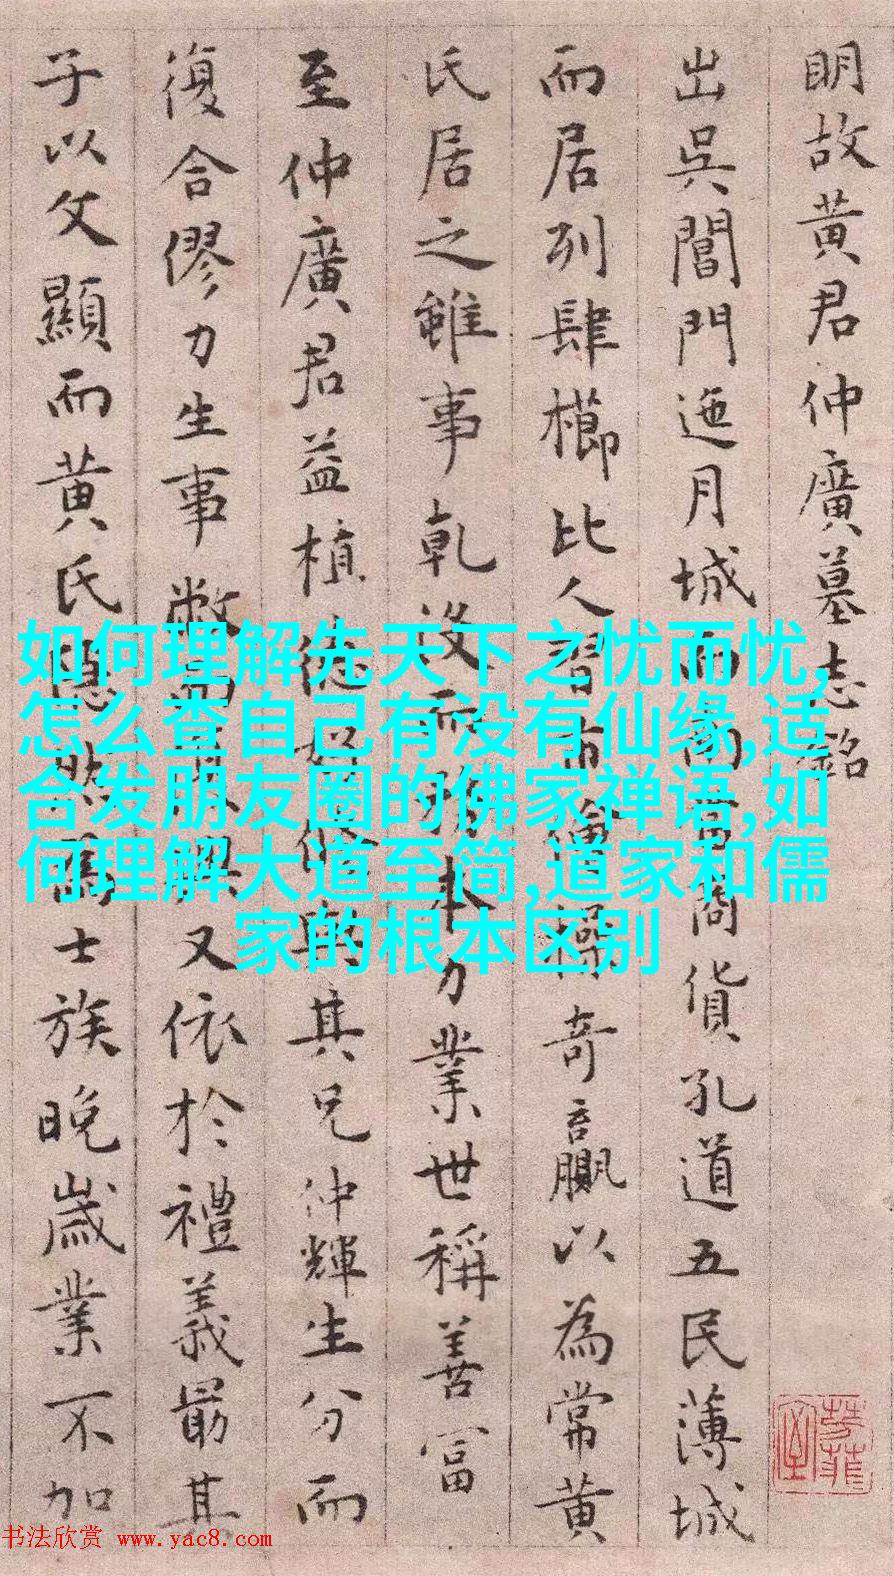 明故黄君仲廣墓志銘
出吳閶門迤月城而南當商貨孔道五民薄城
而居列肆櫛比人習市儈操奇贏以為常黄
氏居之雖事乾没而敦本力業世稱善富
至仲廣君益植德與其兄仲輝生分而
復合僇力生事敝又依於禮義最其
子以文顯而黄氏隱然爲士族晚歲業不加
如何理解先天下之忧而忧,
怎么查自己有没有仙缘,适
合发朋友圈的佛家禅语,如
何理解大道至简,道家和儒
家的根本区别
书法欣赏 www.yac8.com